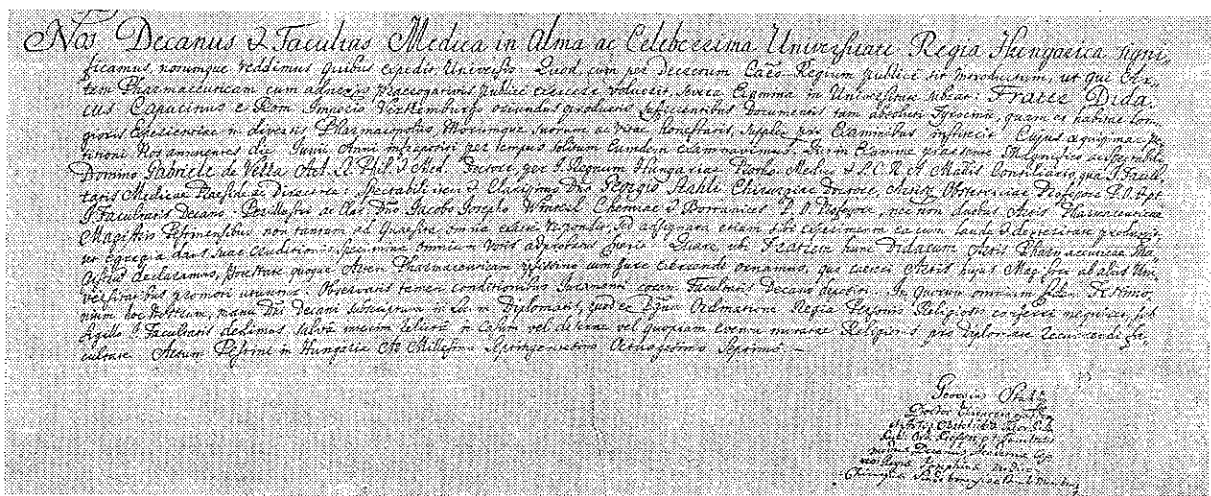 Nos Decanus & Facultas Medica in Alma ac Celeberrima Universitate Regia Hungarica signi-
ficamus, notumque reddimus quibus expedit Universis. Quod, cum per Decretum Caeo-Regium publice sit introductum, ut qui Ar-
tem Pharmaceuticam cum adnexis praerogativis publice exercere voluerit, severa Examina in Universitate subeat: Frater Dida-
cus Capucinus e Rom. Imperio Virttemburgo oriundus productis sufficientibus Documentis tam absoluti Tyrocinii, quam et habitae lon-
gioris Experientiae in diversis Pharmacopoliis, Morumque suorum ac vitae honestatis, supplex pro Examinibus institerit. Cujus
Nos annuentes die Junii Anni infrapositi per tempus solitum Eumdem examinavimus. Porro in Examine praesente Magnifico ac
Domino Gabriele de Vetta Art. L. Phil. & Med. Doctore, per I. Regnum Hungariae Proto-Medico & S. C. R. A. Mattis Consiliario, qua I. Facul-
tatis Medicae Praeside ac Directore: Spectabili item & Clarissimo Dno Georgio Stahli Chirurgiae Doctore, Artis Obstetriciae Professore P. O. &pt.
I. Facultatis Decano. Perillustri ac Clar. Dno Jacobo Josepho Winterl Chemiae & Botanices P. O. Professore, nec non duobus Artis Pharmaceuticae
Magistris Pestinensibus non tantum ad Quaesita omnia respondit, sed adsignata etiam sibi experimenta ea cum laude & dexteritate
ut egregia datis suae eruditionis specimina omnium votis adprobatus fuerit. Quare, ubi Fratrem hunc Didacum Artis Pharmaceuticae Ma-
gistrum declaramus, potestate quoque Artem Pharmaceuticam ipsissimo cum Jure exercendi ornamus, quo caeteri Artis hujus Magistri ab aliis Uni-
versitatibus promoti utuntur: Observatis tamen conditionibus Juramenti coram Facultatis Decano depositi. In quorum omnium fidem Testimo-
nium hoc nostrum, manu Dni Decani subscriptum in formam Diplomatis, quod ex Benigna Ordinatione Regia Personis Religiosis conferri nequit, sub
Sigillo I. Facultatis dedimus, salva interim relicta in casum vel vel quopiam eventu mutatae Religionis pro Diplomate recurrendi fa-
cultate. Actum Pestini in Hungaria Ao Millesimo Septingentesimo Octuagesimo Septimo.
Georgius Stahli
Doctor Chirurgiae
Artis Obstetriciae
Publ. Ord. Professor p.t. Facultatis
medicae Decanus Academiae
Regiae Josephinae Medico-
Chirurgicae